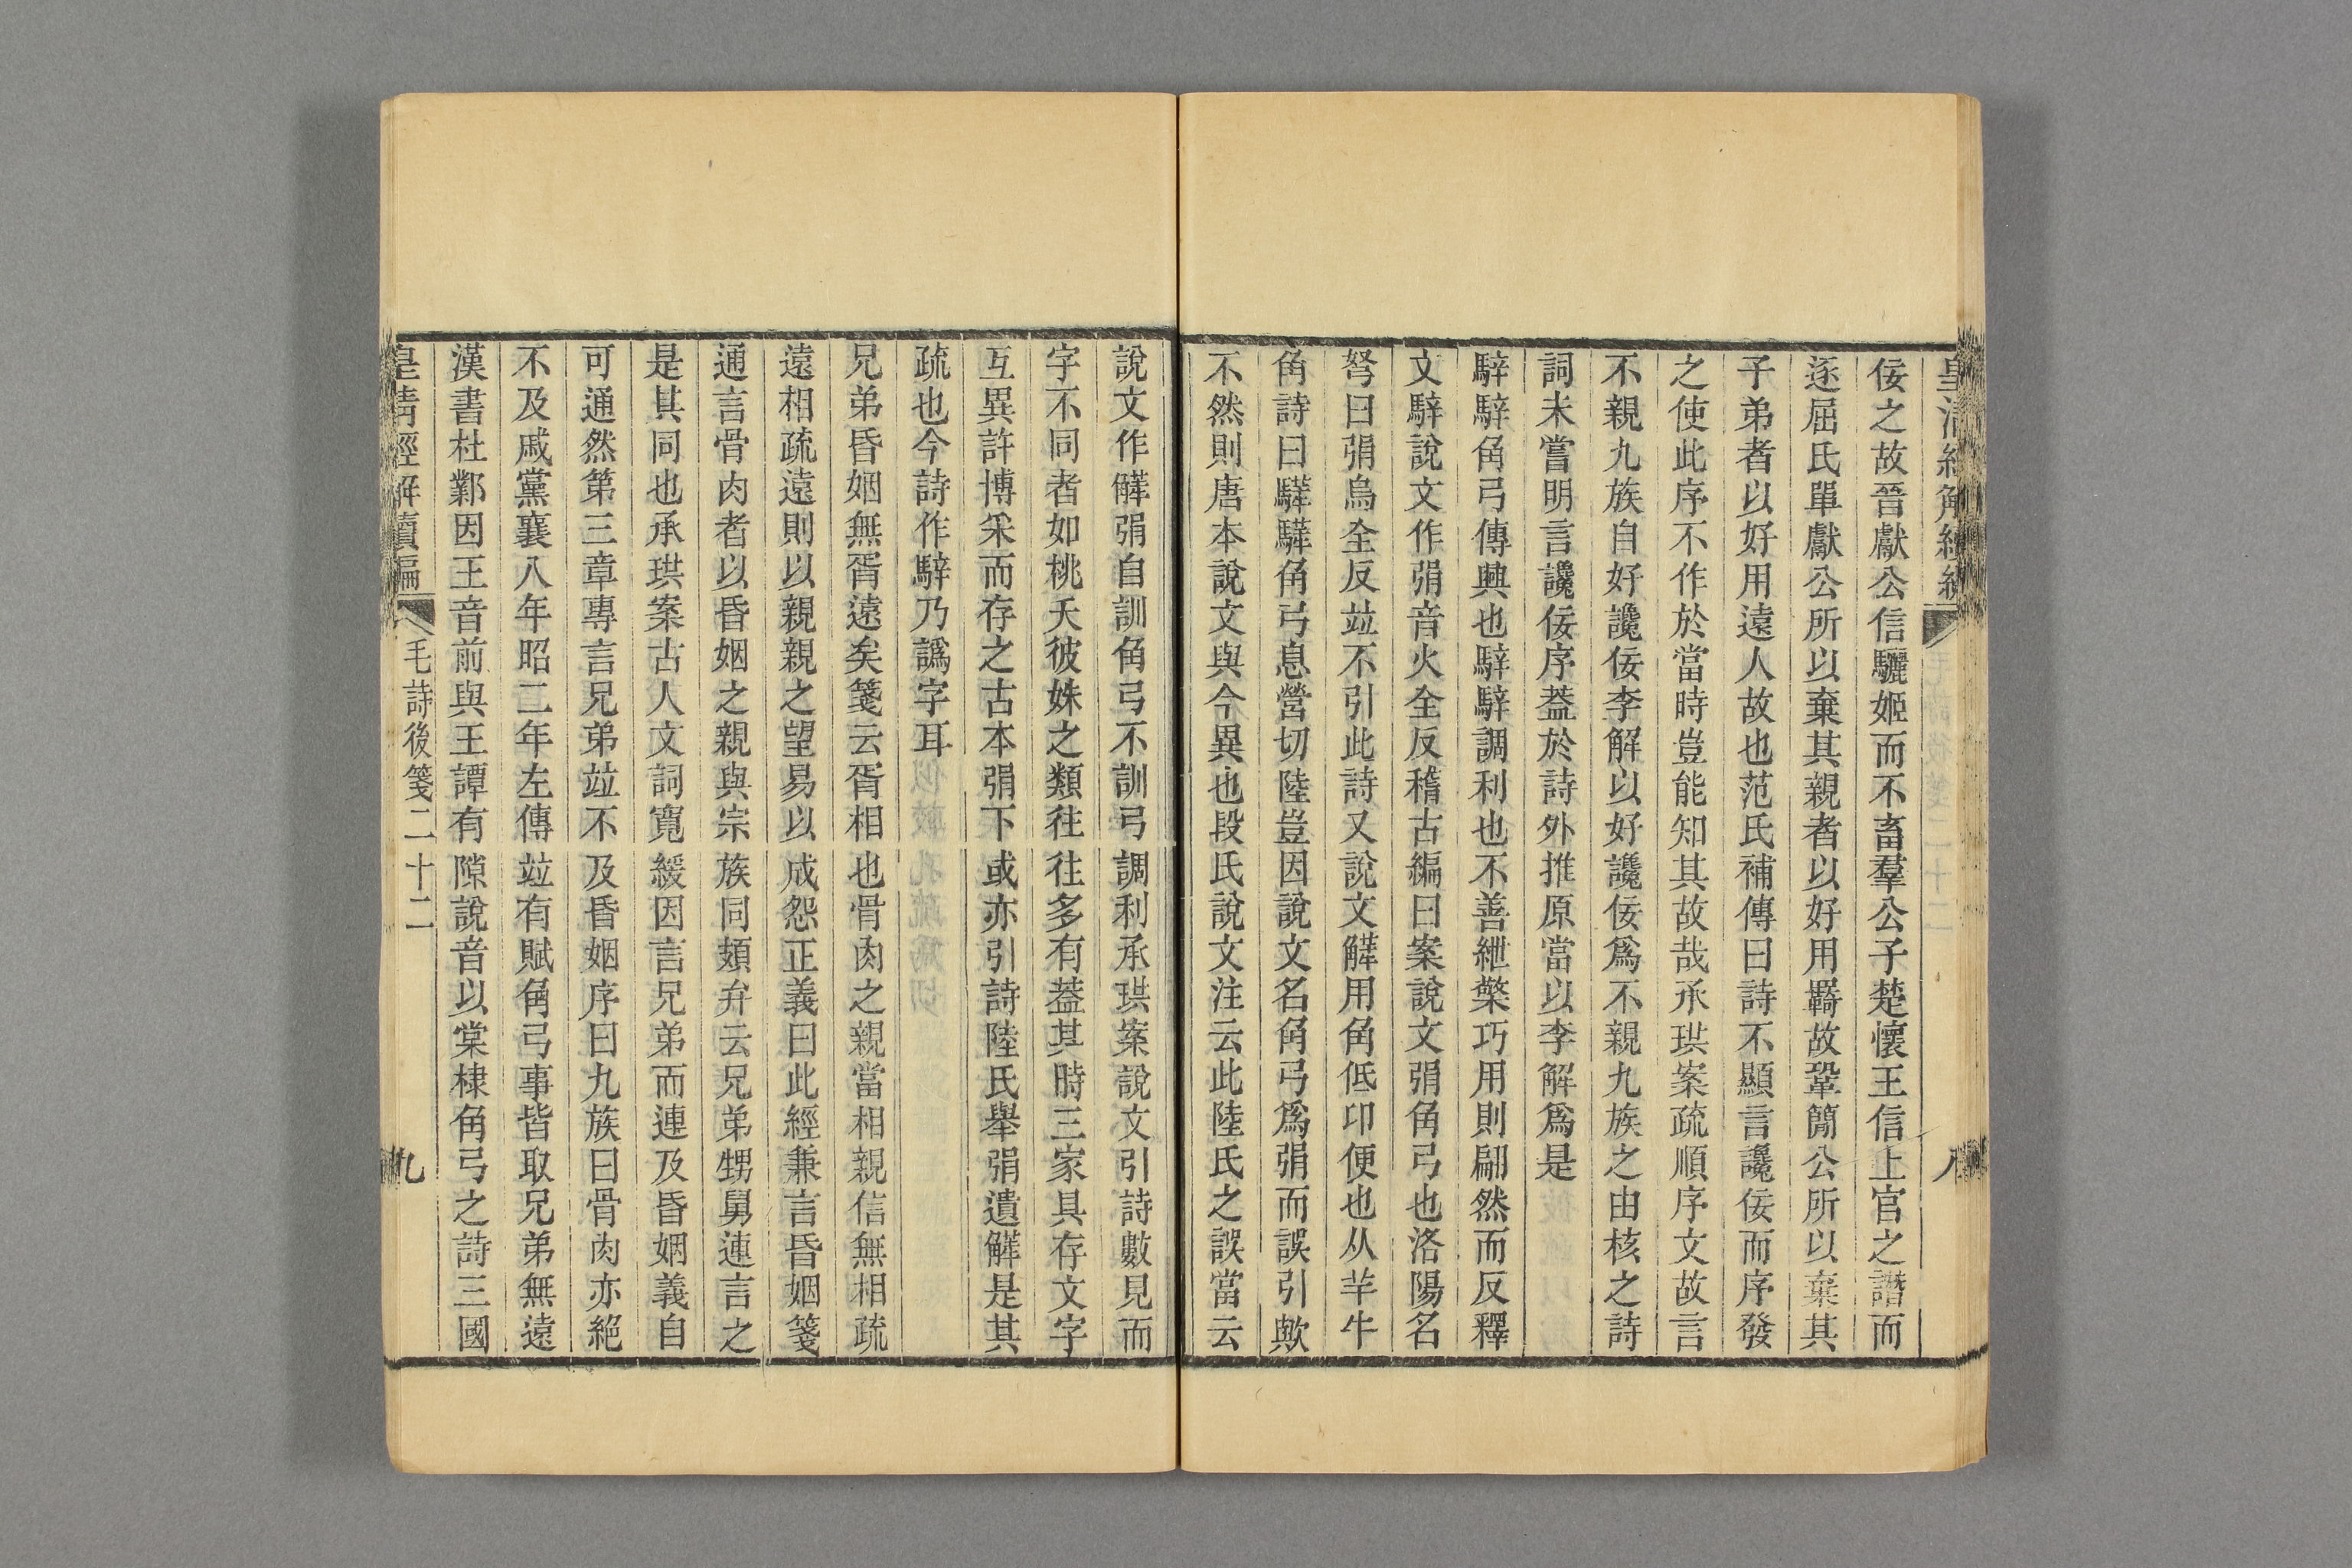 佞之故晉獻公信驪姬而不畜羣公子楚懷王信上官之譖而
逐屈氏單獻公所以棄其親者以好用羇故鞏簡公所以棄其
子弟者以好用遠人故也范氏補傳曰詩不顯言讒佞而序發
之使此序不作於當時豈能知其故哉承珙案疏順序文故言
不親九族自好讒佞李解以好讒佞爲不親九族之由核之詩
詞未嘗明言讒佞序葢於詩外推原當以李解爲是
騂騂角弓傳興也騂騂調利也不善紲檠巧用則翩然而反釋
文騂說文作弲音火全反稽古編曰案說文弲角弓也洛陽名
弩曰弲烏全反竝不引此詩又說文觲用角低卬便也从羊牛
角詩曰觲觲角弓息營切陸豈因說文名角弓爲弲而誤引歟
不然則唐本說文與今異也段氏說文注云此陸氏之誤當云
說文作觲弲自訓角弓不訓弓調利承珙案說文引詩數見而
字不同者如桃夭彼姝之類往往多有葢其時三家具存文字
互異許博采而存之古本弲下或亦引詩陸氏舉弲遺觲是其
疏也今詩作騂乃譌字耳
兄弟昏姻無胥遠矣箋云胥相也骨肉之親當相親信無相疏
遠相疏遠則以親親之望易以成怨正義曰此經兼言昏姻箋
通言骨肉者以昏姻之親與宗族同頍弁云兄弟甥舅連言之
是其同也承珙案古人文詞寬緩因言兄弟而連及昏姻義自
可通然第三章專言兄弟竝不及昏姻序曰九族曰骨肉亦絕
不及戚黨襄八年昭二年左傳竝有賦角弓事皆取兄弟無遠
漢書杜鄴因王音前與王譚有隙說音以棠棣角弓之詩三國
皇清經解續編 毛詩後箋二十二 九